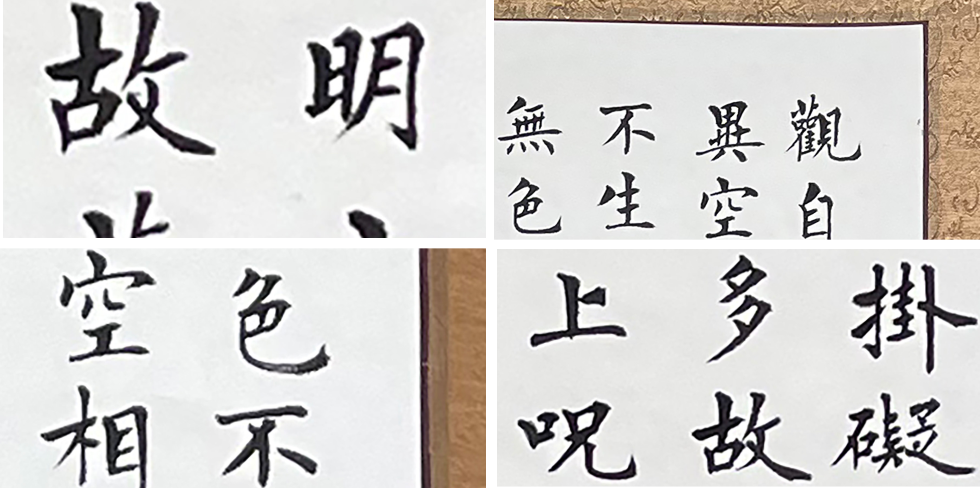 明
故
觀自
異空
不生
無色
色不
空相
掛礙
多故
上呪